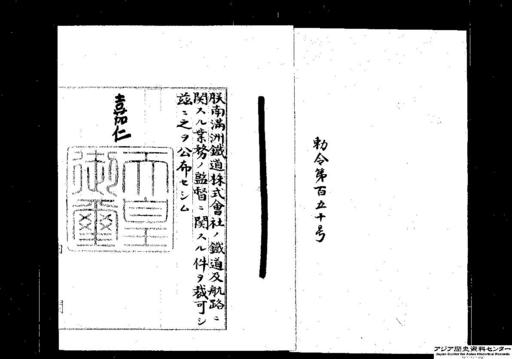 勅令第百五十号
朕南滿洲鐵道株式會社ノ鐵道及航路ニ
関スル業務ノ監督ニ関スル件ヲ裁可シ
茲ニ之ヲ公布セシム
嘉仁
天皇
御璽
アジア歴史資料センター
Japan Center for Asian Historical Records